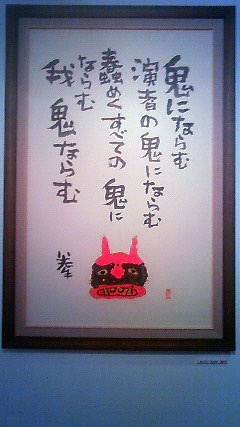 鬼にならむ
演者の鬼にならむ
蠢めくすべての鬼に
ならむ
我鬼ならむ